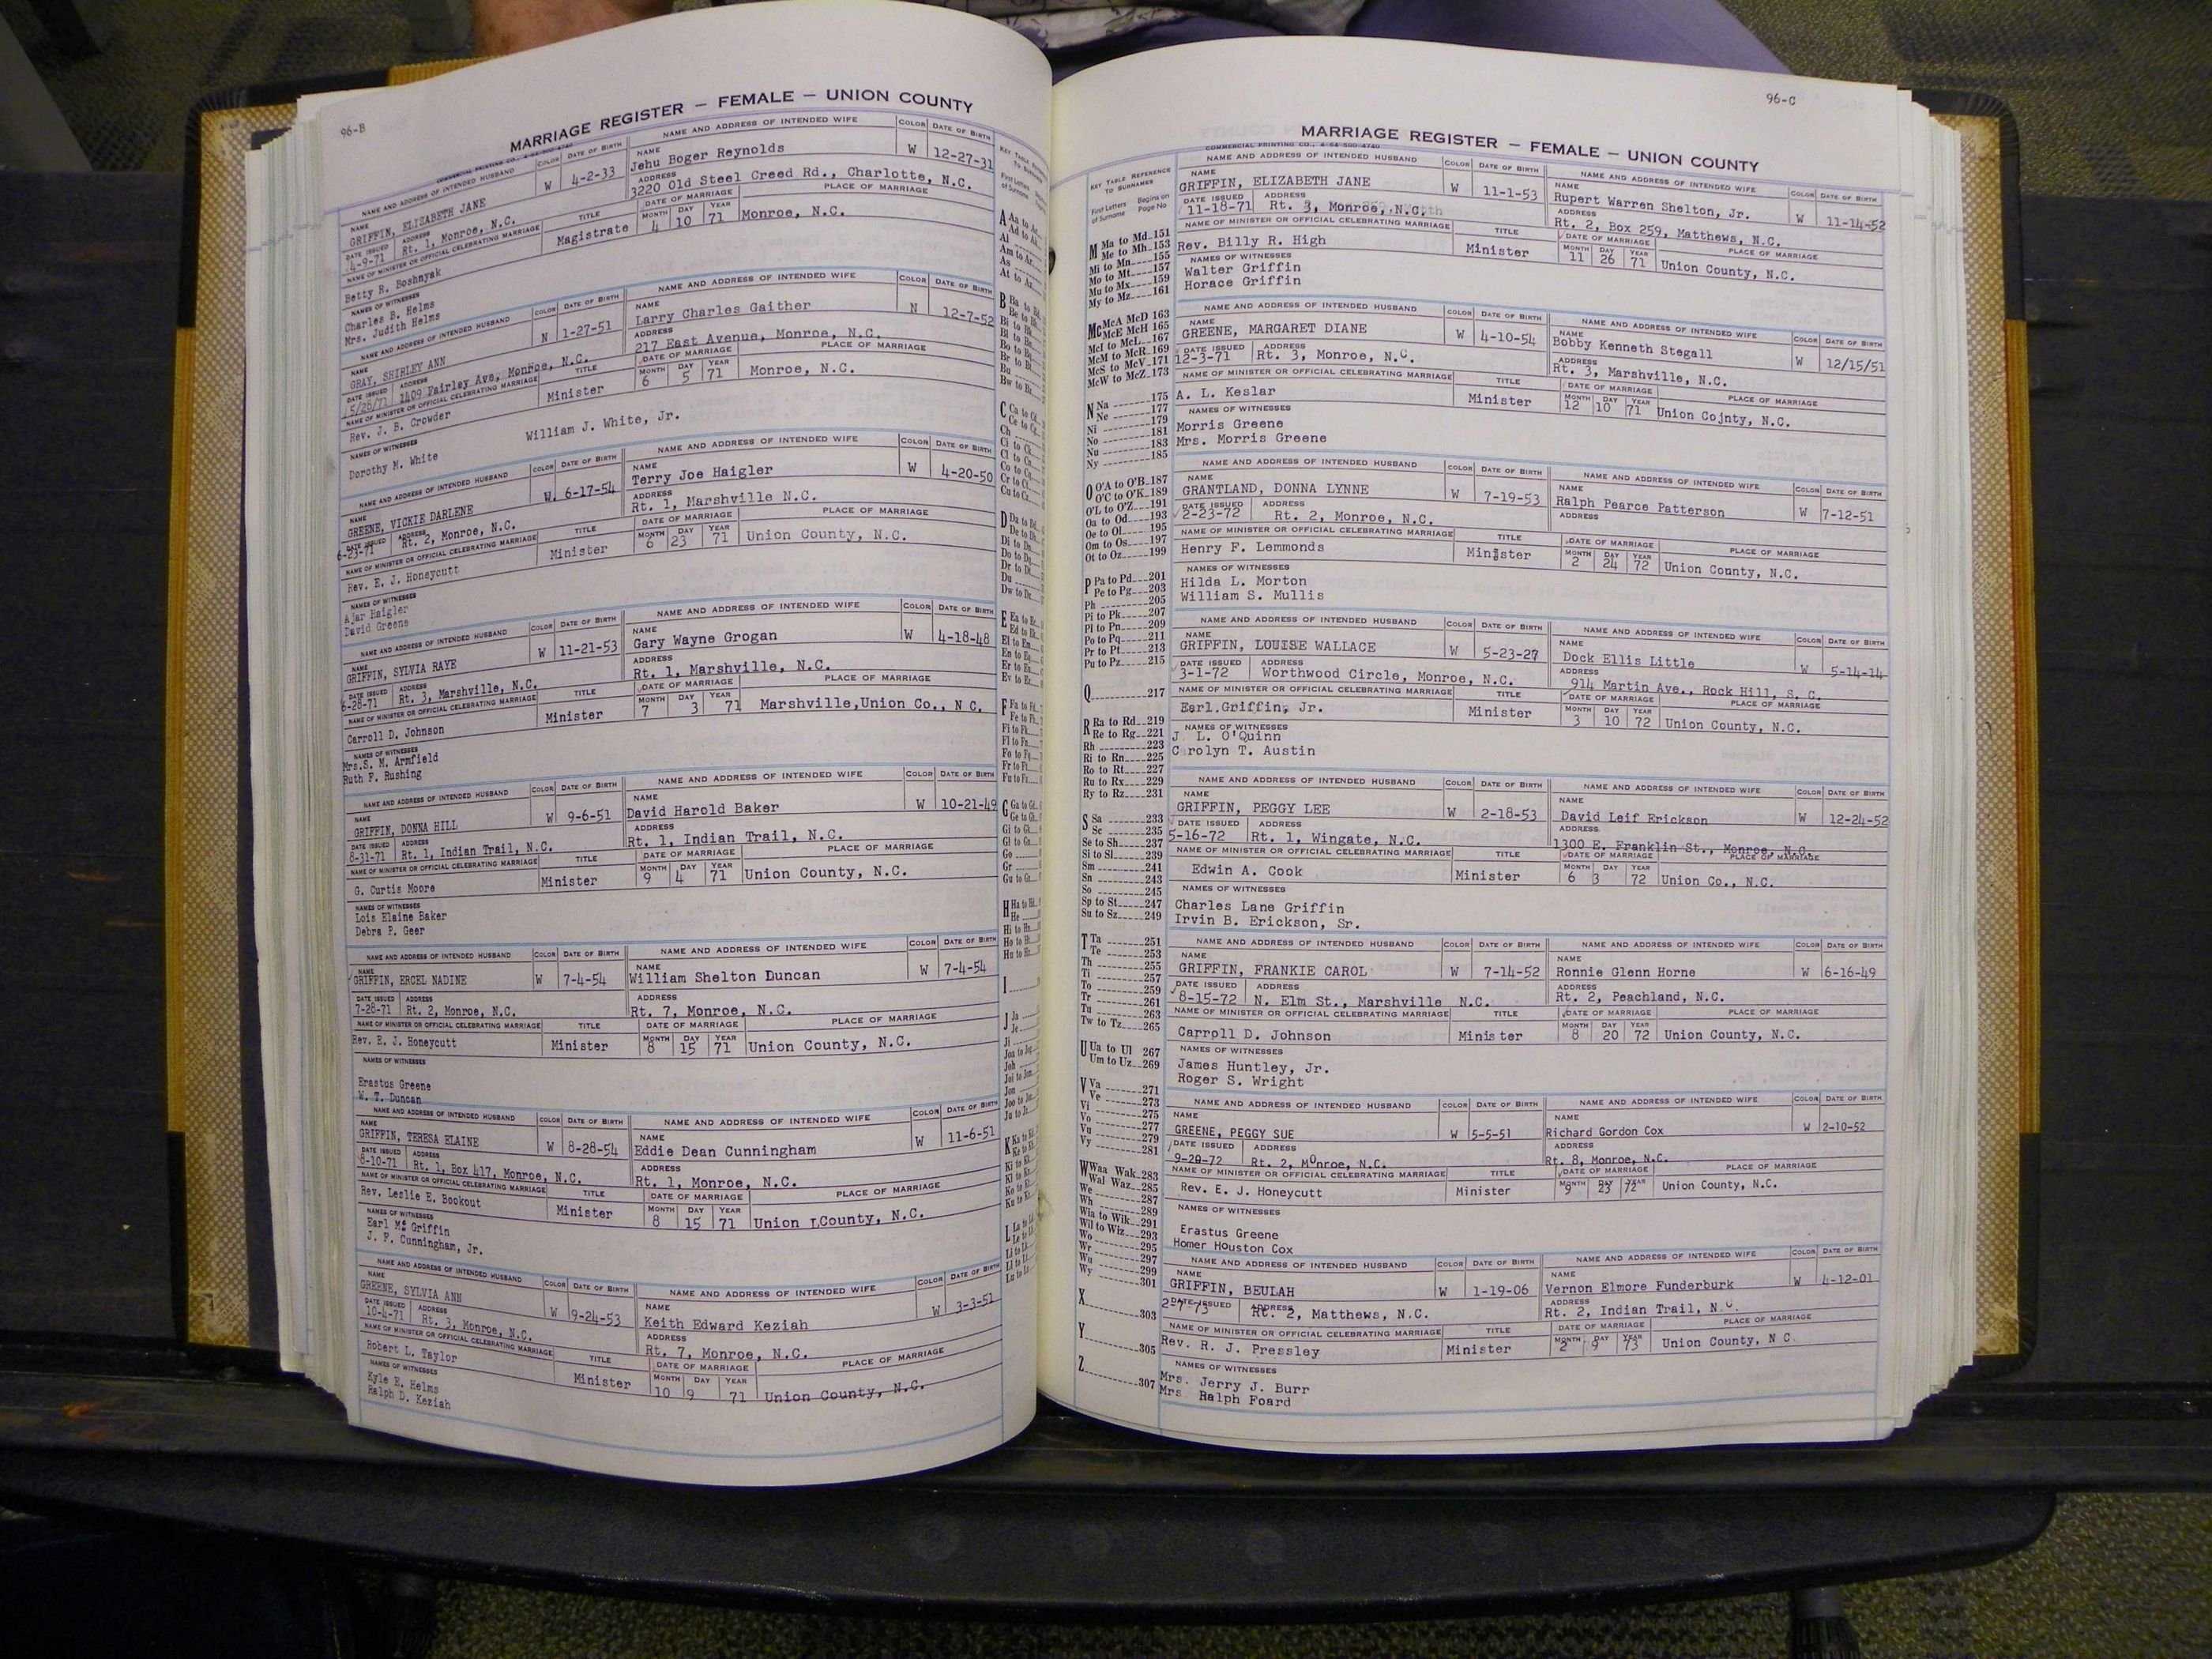 96-B
MARRIAGE REGISTER — FEMALE — UNION COUNTY
COMMERCIAL PRINTING CO., 4-64-500-4740
NAME AND ADDRESS OF INTENDED HUSBAND COLOR DATE OF BIRTH NAME AND ADDRESS OF INTENDED WIFE COLOR DATE OF BIRTH
NAME GRIFFIN, ELIZABETH JANE W 4-2-33 NAME Jehu Boger Reynolds W 12-27-31
DATE ISSUED 4-9-71 ADDRESS Rt. 1, Monroe, N.C. ADDRESS 3220 Old Steel Creed Rd., Charlotte, N.C.
NAME OF MINISTER OR OFFICIAL CELEBRATING MARRIAGE TITLE DATE OF MARRIAGE PLACE OF MARRIAGE
Betty R. Boshnyak Magistrate MONTH 4 DAY 10 YEAR 71 Monroe, N.C.
NAMES OF WITNESSES
Charles B. Helms
Mrs. Judith Helms
NAME AND ADDRESS OF INTENDED HUSBAND COLOR DATE OF BIRTH NAME AND ADDRESS OF INTENDED WIFE COLOR DATE OF BIRTH
NAME GRAY, SHIRLEY ANN N 1-27-51 NAME Larry Charles Gaither N 12-7-52
DATE ISSUED 5/28/71 ADDRESS 1409 Fairley Ave, Monroe, N.C. ADDRESS 217 East Avenue, Monroe, N.C.
NAME OF MINISTER OR OFFICIAL CELEBRATING MARRIAGE TITLE DATE OF MARRIAGE PLACE OF MARRIAGE
Rev. J. B. Crowder Minister MONTH 6 DAY 5 YEAR 71 Monroe, N.C.
NAMES OF WITNESSES
Dorothy M. White William J. White, Jr.
NAME AND ADDRESS OF INTENDED HUSBAND COLOR DATE OF BIRTH NAME AND ADDRESS OF INTENDED WIFE COLOR DATE OF BIRTH
NAME GREENE, VICKIE DARLENE W 6-17-54 NAME Terry Joe Haigler W 4-20-50
DATE ISSUED 6-23-71 ADDRESS Rt. 2, Monroe, N.C. ADDRESS Rt. 1, Marshville N.C.
NAME OF MINISTER OR OFFICIAL CELEBRATING MARRIAGE TITLE DATE OF MARRIAGE PLACE OF MARRIAGE
Rev. E. J. Honeycutt Minister MONTH 6 DAY 23 YEAR 71 Union County, N.C.
NAMES OF WITNESSES
Ajar Haigler
David Greene
NAME AND ADDRESS OF INTENDED HUSBAND COLOR DATE OF BIRTH NAME AND ADDRESS OF INTENDED WIFE COLOR DATE OF BIRTH
NAME GRIFFIN, SYLVIA RAYE W 11-21-53 NAME Gary Wayne Grogan W 4-18-48
DATE ISSUED 6-28-71 ADDRESS Rt. 3, Marshville, N.C. ADDRESS Rt. 1, Marshville, N.C.
NAME OF MINISTER OR OFFICIAL CELEBRATING MARRIAGE TITLE DATE OF MARRIAGE PLACE OF MARRIAGE
Carroll D. Johnson Minister MONTH 7 DAY 3 YEAR 71 Marshville,Union Co., N C.
NAMES OF WITNESSES
Mrs.S. M. Armfield
Ruth F. Rushing
NAME AND ADDRESS OF INTENDED HUSBAND COLOR DATE OF BIRTH NAME AND ADDRESS OF INTENDED WIFE COLOR DATE OF BIRTH
NAME GRIFFIN, DONNA HILL W 9-6-51 NAME David Harold Baker W 10-21-49
DATE ISSUED 8-31-71 ADDRESS Rt. 1, Indian Trail, N.C. ADDRESS Rt. 1, Indian Trail, N.C.
NAME OF MINISTER OR OFFICIAL CELEBRATING MARRIAGE TITLE DATE OF MARRIAGE PLACE OF MARRIAGE
G. Curtis Moore Minister MONTH 9 DAY 4 YEAR 71 Union County, N.C.
NAMES OF WITNESSES
Lois Elaine Baker
Debra P. Geer
NAME AND ADDRESS OF INTENDED HUSBAND COLOR DATE OF BIRTH NAME AND ADDRESS OF INTENDED WIFE COLOR DATE OF BIRTH
NAME GRIFFIN, ERCEL NADINE W 7-4-54 NAME William Shelton Duncan W 7-4-54
DATE ISSUED 7-28-71 ADDRESS Rt. 2, Monroe, N.C. ADDRESS Rt. 7, Monroe, N.C.
NAME OF MINISTER OR OFFICIAL CELEBRATING MARRIAGE TITLE DATE OF MARRIAGE PLACE OF MARRIAGE
Rev. E. J. Honeycutt Minister MONTH 8 DAY 15 YEAR 71 Union County, N.C.
NAMES OF WITNESSES
Erastus Greene
W. T. Duncan
NAME AND ADDRESS OF INTENDED HUSBAND COLOR DATE OF BIRTH NAME AND ADDRESS OF INTENDED WIFE COLOR DATE OF BIRTH
NAME GRIFFIN, TERESA ELAINE W 8-28-54 NAME Eddie Dean Cunningham W 11-6-51
DATE ISSUED 8-10-71 ADDRESS Rt. 1, Box 417, Monroe, N.C. ADDRESS Rt. 1, Monroe, N.C.
NAME OF MINISTER OR OFFICIAL CELEBRATING MARRIAGE TITLE DATE OF MARRIAGE PLACE OF MARRIAGE
Rev. Leslie E. Bookout Minister MONTH 8 DAY 15 YEAR 71 Union County, N.C.
NAMES OF WITNESSES
Earl Mc Griffin
J. F. Cunningham, Jr.
NAME AND ADDRESS OF INTENDED HUSBAND COLOR DATE OF BIRTH NAME AND ADDRESS OF INTENDED WIFE COLOR DATE OF BIRTH
NAME GREENE, SYLVIA ANN W 9-24-53 NAME Keith Edward Keziah W 3-3-51
DATE ISSUED 10-4-71 ADDRESS Rt. 3, Monroe, N.C. ADDRESS Rt. 7, Monroe, N.C.
NAME OF MINISTER OR OFFICIAL CELEBRATING MARRIAGE TITLE DATE OF MARRIAGE PLACE OF MARRIAGE
Robert L. Taylor Minister MONTH 10 DAY 9 YEAR 71 Union County, N.C.
NAMES OF WITNESSES
Kyle E. Helms
Ralph D. Keziah
96-C
MARRIAGE REGISTER — FEMALE — UNION COUNTY
COMMERCIAL PRINTING CO., 4-64-500-4740
KEY TABLE REFERENCE
TO SURNAMES
First Letters of Surname Begins on Page No
M Ma to Md 151
Me to Mh 153
Mi to Mn 155
Mo to Mt 157
Mu to Mx 159
My to Mz 161
Mc McA McD 163
McE McH 165
McI to McL 167
McM to McR 169
McS to McV 171
McW to McZ 173
N Na 175
Ne 177
Ni 179
No 181
Nu 183
Ny 185
O O'A to O'B 187
O'C to O'K 189
O'L to O'Z 191
Oa to Od 193
Oe to Ol 195
Om to Os 197
Ot to Oz 199
P Pa to Pd 201
Pe to Pg 203
Ph 205
Pi to Pk 207
Pl to Pn 209
Po to Pq 211
Pr to Pt 213
Pu to Pz 215
Q 217
R Ra to Rd 219
Re to Rg 221
Rh 223
Ri to Rn 225
Ro to Rt 227
Ru to Rx 229
Ry to Rz 231
S Sa 233
Sc 235
Se to Sh 237
Si to Sl 239
Sm 241
Sn 243
So 245
Sp to St 247
Su to Sz 249
T Ta 251
Te 253
Th 255
Ti 257
To 259
Tr 261
Tu 263
Tw to Tz 265
U Ua to Ul 267
Um to Uz 269
V Va 271
Ve 273
Vi 275
Vo 277
Vu 279
Vy 281
W Waa Wak 283
Wal Waz 285
We 287
Wh 289
Wia to Wik 291
Wil to Wiz 293
Wo 295
Wr 297
Wu 299
Wy 301
X 303
Y 305
Z 307
NAME AND ADDRESS OF INTENDED HUSBAND COLOR DATE OF BIRTH NAME AND ADDRESS OF INTENDED WIFE COLOR DATE OF BIRTH
NAME GRIFFIN, ELIZABETH JANE W 11-1-53 NAME Rupert Warren Shelton, Jr. W 11-14-52
DATE ISSUED 11-18-71 ADDRESS Rt. 3, Monroe, N.C. ADDRESS Rt. 2, Box 259, Matthews, N.C.
NAME OF MINISTER OR OFFICIAL CELEBRATING MARRIAGE TITLE DATE OF MARRIAGE PLACE OF MARRIAGE
Rev. Billy R. High Minister MONTH 11 DAY 26 YEAR 71 Union County, N.C.
NAMES OF WITNESSES
Walter Griffin
Horace Griffin
NAME AND ADDRESS OF INTENDED HUSBAND COLOR DATE OF BIRTH NAME AND ADDRESS OF INTENDED WIFE COLOR DATE OF BIRTH
NAME GREENE, MARGARET DIANE W 4-10-54 NAME Bobby Kenneth Stegall W 12/15/51
DATE ISSUED 12-3-71 ADDRESS Rt. 3, Monroe, N.C. ADDRESS Rt. 3, Marshville, N.C.
NAME OF MINISTER OR OFFICIAL CELEBRATING MARRIAGE TITLE DATE OF MARRIAGE PLACE OF MARRIAGE
A. L. Keslar Minister MONTH 12 DAY 10 YEAR 71 Union Cojnty, N.C.
NAMES OF WITNESSES
Morris Greene
Mrs. Morris Greene
NAME AND ADDRESS OF INTENDED HUSBAND COLOR DATE OF BIRTH NAME AND ADDRESS OF INTENDED WIFE COLOR DATE OF BIRTH
NAME GRANTLAND, DONNA LYNNE W 7-19-53 NAME Ralph Pearce Patterson W 7-12-51
DATE ISSUED 2-23-72 ADDRESS Rt. 2, Monroe, N.C. ADDRESS
NAME OF MINISTER OR OFFICIAL CELEBRATING MARRIAGE TITLE DATE OF MARRIAGE PLACE OF MARRIAGE
Henry F. Lemmonds Minister MONTH 2 DAY 24 YEAR 72 Union County, N.C.
NAMES OF WITNESSES
Hilda L. Morton
William S. Mullis
NAME AND ADDRESS OF INTENDED HUSBAND COLOR DATE OF BIRTH NAME AND ADDRESS OF INTENDED WIFE COLOR DATE OF BIRTH
NAME GRIFFIN, LOUISE WALLACE W 5-23-27 NAME Dock Ellis Little W 5-14-14
DATE ISSUED 3-1-72 ADDRESS Worthwood Circle, Monroe, N.C. ADDRESS 914 Martin Ave., Rock Hill, S. C.
NAME OF MINISTER OR OFFICIAL CELEBRATING MARRIAGE TITLE DATE OF MARRIAGE PLACE OF MARRIAGE
Earl.Griffin, Jr. Minister MONTH 3 DAY 10 YEAR 72 Union County, N.C.
NAMES OF WITNESSES
J. L. O'Quinn
Carolyn T. Austin
NAME AND ADDRESS OF INTENDED HUSBAND COLOR DATE OF BIRTH NAME AND ADDRESS OF INTENDED WIFE COLOR DATE OF BIRTH
NAME GRIFFIN, PEGGY LEE W 2-18-53 NAME David Leif Erickson W 12-24-52
DATE ISSUED 5-16-72 ADDRESS Rt. 1, Wingate, N.C. ADDRESS 1300 E. Franklin St., Monroe, N.C.
NAME OF MINISTER OR OFFICIAL CELEBRATING MARRIAGE TITLE DATE OF MARRIAGE PLACE OF MARRIAGE
Edwin A. Cook Minister MONTH 6 DAY 3 YEAR 72 Union Co., N.C.
NAMES OF WITNESSES
Charles Lane Griffin
Irvin B. Erickson, Sr.
NAME AND ADDRESS OF INTENDED HUSBAND COLOR DATE OF BIRTH NAME AND ADDRESS OF INTENDED WIFE COLOR DATE OF BIRTH
NAME GRIFFIN, FRANKIE CAROL W 7-14-52 NAME Ronnie Glenn Horne W 6-16-49
DATE ISSUED 8-15-72 ADDRESS N. Elm St., Marshville N.C. ADDRESS Rt. 2, Peachland, N.C.
NAME OF MINISTER OR OFFICIAL CELEBRATING MARRIAGE TITLE DATE OF MARRIAGE PLACE OF MARRIAGE
Carroll D. Johnson Minister MONTH 8 DAY 20 YEAR 72 Union County, N.C.
NAMES OF WITNESSES
James Huntley, Jr.
Roger S. Wright
NAME AND ADDRESS OF INTENDED HUSBAND COLOR DATE OF BIRTH NAME AND ADDRESS OF INTENDED WIFE COLOR DATE OF BIRTH
NAME GREENE, PEGGY SUE W 5-5-51 NAME Richard Gordon Cox W 2-10-52
DATE ISSUED 9-20-72 ADDRESS Rt. 2, Monroe, N.C. ADDRESS Rt. 8, Monroe, N.C.
NAME OF MINISTER OR OFFICIAL CELEBRATING MARRIAGE TITLE DATE OF MARRIAGE PLACE OF MARRIAGE
Rev. E. J. Honeycutt Minister MONTH 9 DAY 23 YEAR 72 Union County, N.C.
NAMES OF WITNESSES
Erastus Greene
Homer Houston Cox
NAME AND ADDRESS OF INTENDED HUSBAND COLOR DATE OF BIRTH NAME AND ADDRESS OF INTENDED WIFE COLOR DATE OF BIRTH
NAME GRIFFIN, BEULAH W 1-19-06 NAME Vernon Elmore Funderburk W 4-12-01
DATE ISSUED 2-7-73 ADDRESS Rt. 2, Matthews, N.C. ADDRESS Rt. 2, Indian Trail, N.C.
NAME OF MINISTER OR OFFICIAL CELEBRATING MARRIAGE TITLE DATE OF MARRIAGE PLACE OF MARRIAGE
Rev. R. J. Pressley Minister MONTH 2 DAY 9 YEAR 73 Union County, N C.
NAMES OF WITNESSES
Mrs. Jerry J. Burr
Mrs Ralph Foard